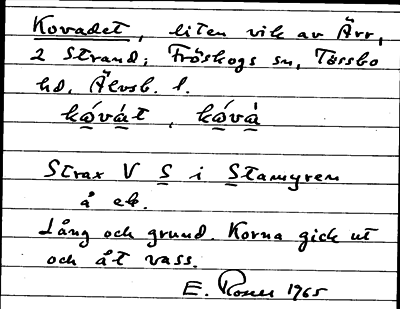 Kovadet, liten vik av Ärr,
2 Strand; Fröskogs sn, Tössbo
hd, Älvsb. l.
kǻvát, kǻvà
Strax V S i Stamyren
å ek.
Lång och grund. Korna gick ut
och åt vass.
E. 1965